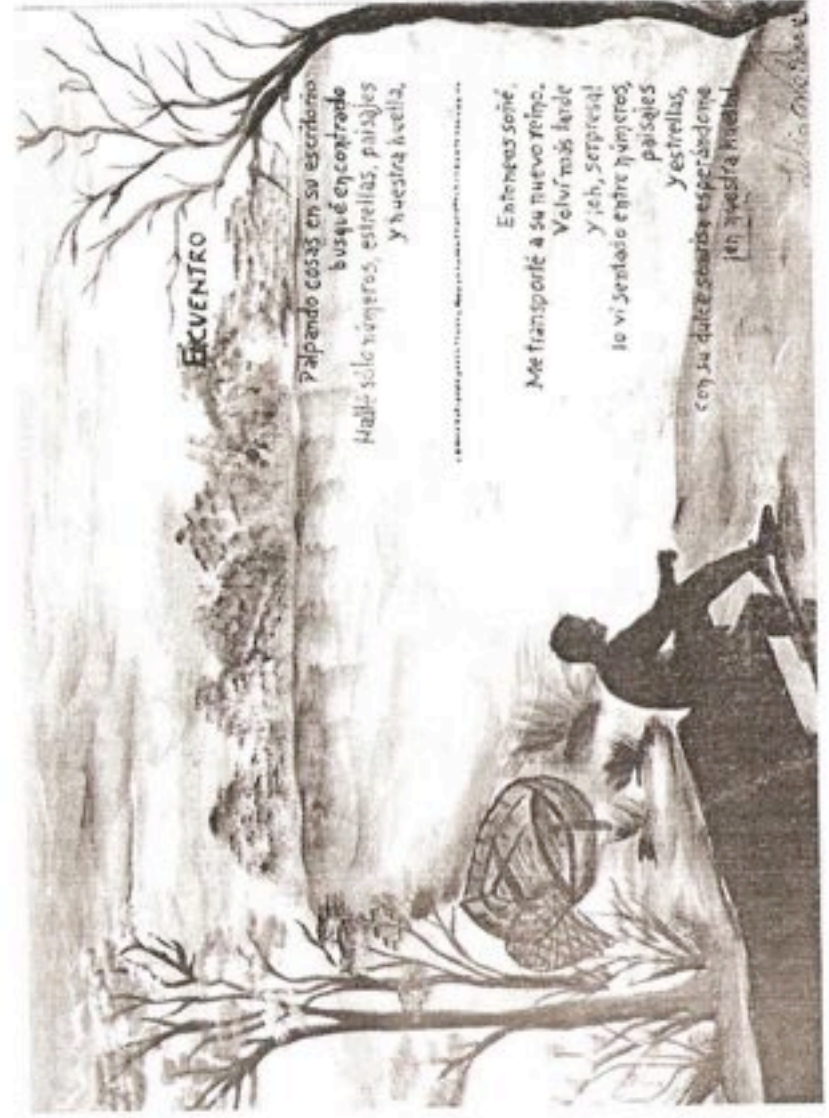 ENCUENTRO
Palpando cosas en su escritorio
busqué encontrado
Hallé solo números, estrellas, paisajes
y nuestra huella,
................................................
Entonces soñé.
Me transporté a su nuevo reino.
Volví más tarde
y ¡oh, sorpresa!
lo vi sentado entre números,
paisajes
y estrellas,
con su dulce sonrisa esperándome
¡en nuestra huella!